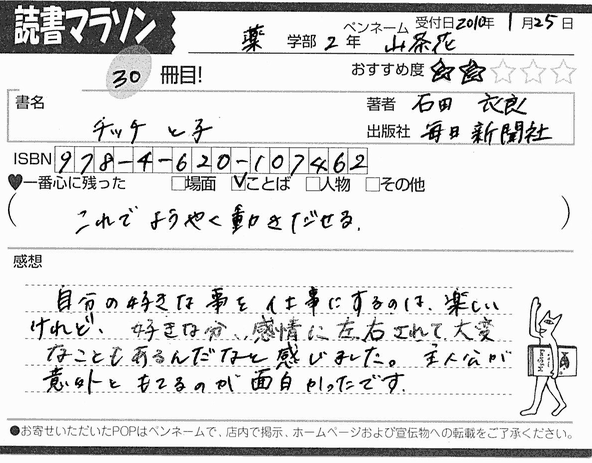 読書マラソン
薬 学部 2 年 ペンネーム 山茶花 受付日 2010年 1月25日
30 冊目!
おすすめ度 ★★☆☆☆
書名 チッチと子
著者 石田 衣良
出版社 毎日新聞社
ISBN 978-4-620-107462
♥一番心に残った □場面 ☑ことば □人物 □その他
(これでようやく動きだせる。)
感想
自分の好きな事を仕事にするのは、楽しい
けれど、好きな分、感情に左右されて大変
なこともあるんだなと感じました。主人公が
意外ともてるのが面白かったです。
●お寄せいただいたPOPはペンネームで、店内で掲示、ホームページおよび宣伝物への転載をご了承ください。